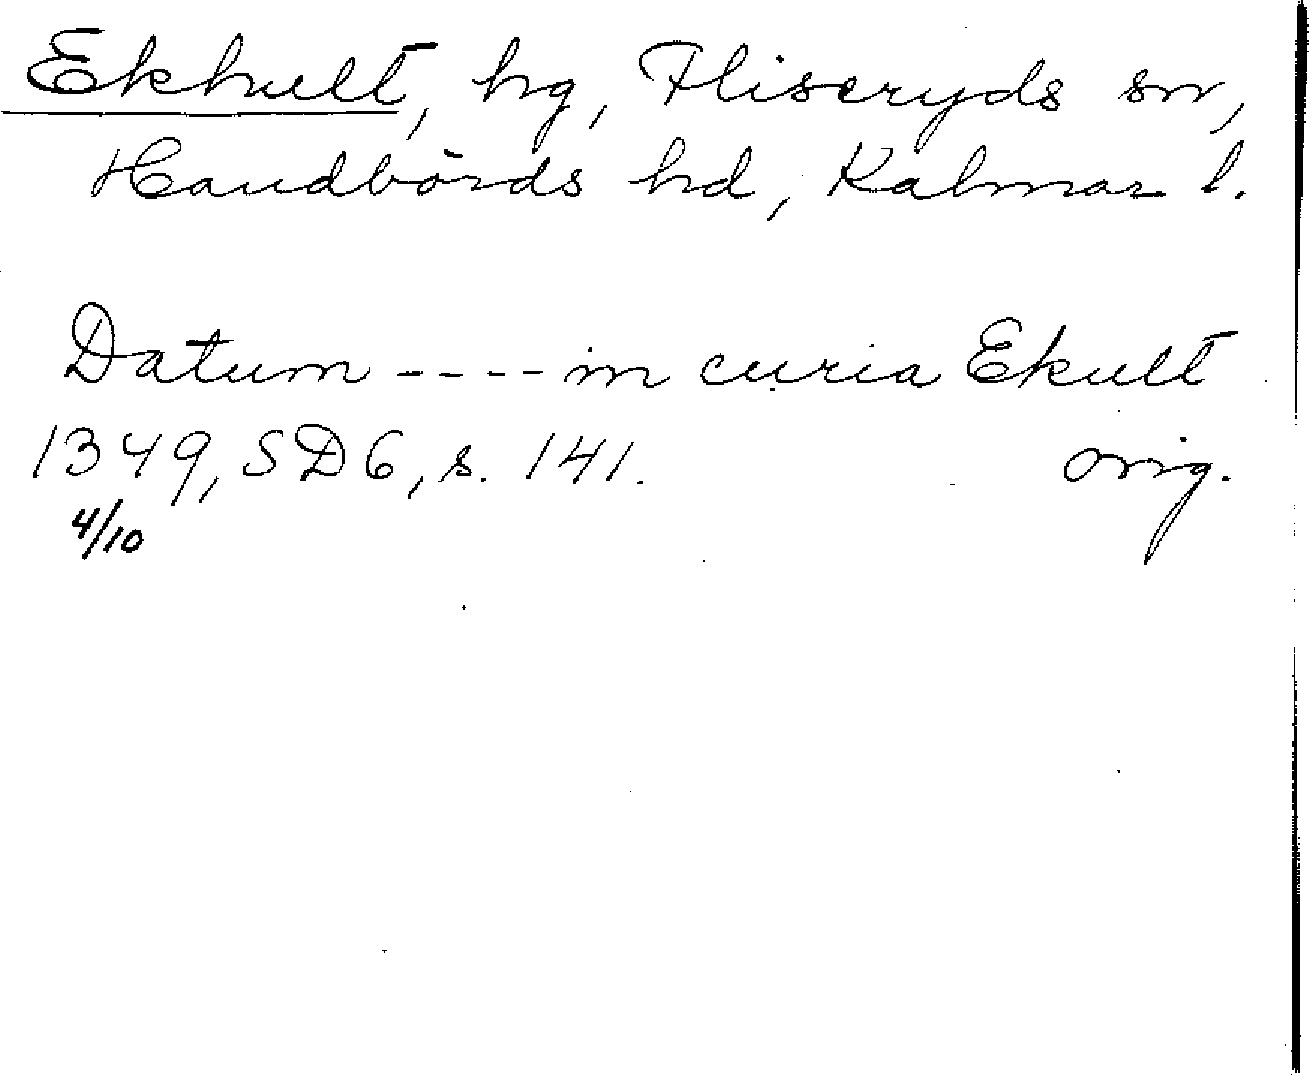 Ekhult, hg, Fliseryds sn,
Handbörds hd, Kalmar l.
Datum ---- in curia Ekult
1349, SD 6, s. 141. orig.
4/10